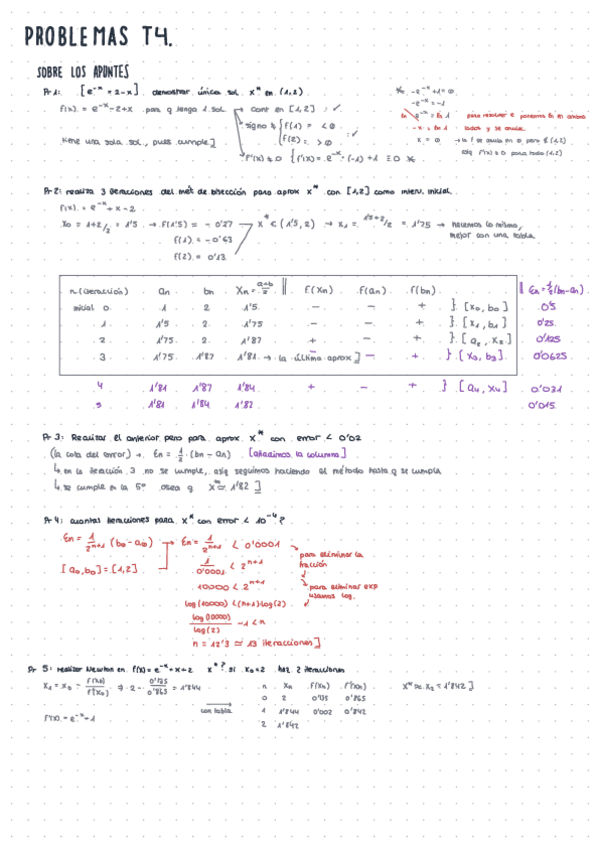 PROBLEMAS T4.
SOBRE LOS APUNTES
Pr 1: [e^-x = 2-x] demostrar única sol. x* en (1,2)
f(x) = e^-x - 2 + x para q tenga 1 sol → cont en [1,2] : ✓
signo ≠ { f(1) = < 0
f(2) = > 0 : ✓
tiene una sola sol., pues cumple]
f'(x) ≠ 0 { f'(x) = e^-x · (-1) + 1
-e^-x + 1 = 0
-e^-x = -1
e^-x = ln 1
-x = ln 1
x = 0
para resolver e ponemos ln en ambos
lados y se anula
→ la f se anula en 0, pero ∉ (1,2)
asíq f'(x) ≠ 0 para todo (1,2)
Pr 2: realiza 3 iteraciones del mét de bisección para aprox x* con [1,2] como interv. inicial.
f(x) = e^-x + x - 2
x0 = 1+2/2 = 1'5 → f(1'5) = -0'27
x* ∈ (1'5, 2) → x1 = 1'5+2/2 = 1'75 → hacemos lo mismo,
mejor con una tabla
f(1) = -0'63
f(2) = 0'13
n (iteración) an bn xn = a+b/2 || f(xn) f(an) f(bn) || En = 1/2(bn-an)
inicial 0 1 2 1'5 - - + } [x0, b0] 0'5
1 1'5 2 1'75 - - + } [x1, b1] 0'25
2 1'75 2 1'87 + - + } [a2, x2] 0'125
3 1'75 1'87 1'81 → la última aprox] - + } [x3, b3] 0'0625
4 1'81 1'87 1'84 + - + } [a4, x4] 0'031
5 1'81 1'84 1'82 0'015
Pr 3: Realizar el anterior pero para aprox. x* con error < 0'02
(la cota del error) → En = 1/2 · (bn - an) [añadimos la columna]
↳ en la iteración 3 no se cumple, asíq seguimos haciendo el método hasta q se cumpla
↳ se cumple en la 5ª osea q x* ≃ 1'82]
Pr 4: cuantas iteraciones para x* con error < 10^-4?
En = 1/2^n+1 (b0 - a0)
En = 1/2^n+1 < 0'0001
[a0, b0] = [1,2]
1/0'0001 < 2^n+1
para eliminar la
fracción
10000 < 2^n+1
para eliminar exp
usamos log.
log(10000) < (n+1) log(2)
log(10000)/log(2) - 1 < n
n = 12'3 ≃ 13 iteraciones]
Pr 5: realizar Newton en f(x) = e^-x + x - 2 x*? si x0 = 2 haz 2 iteraciones
x1 = x0 - f(x0)/f'(x0) ⇒ 2 - 0'135/0'865 = 1'844
f'(x) = -e^-x + 1
con tabla
n xn f(xn) f'(xn)
0 2 0'135 0'865
1 1'844 0'002 0'842
2 1'842
x* ≃ x2 = 1'842]